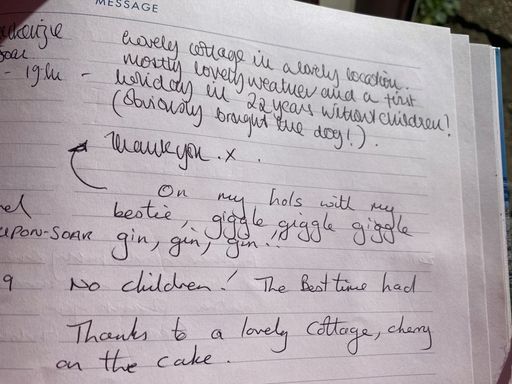 MESSAGE
Lovely cottage in a lovely location.
mostly lovely weather and a first
- 19th - holiday in 22 years without children!
(Obviously brought the dog!).
Thankyou. x.
On my hols with my
bestie, giggle, giggle giggle
UPON-SOAR gin, gin, gin..
9 No children! The Best time had
Thanks to a lovely cottage, cherry
on the cake.